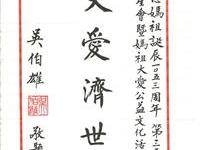 媽祖誕辰一〇五三周年 第三
會暨媽祖大愛公益文化活
大愛濟世
吳伯雄 敬題